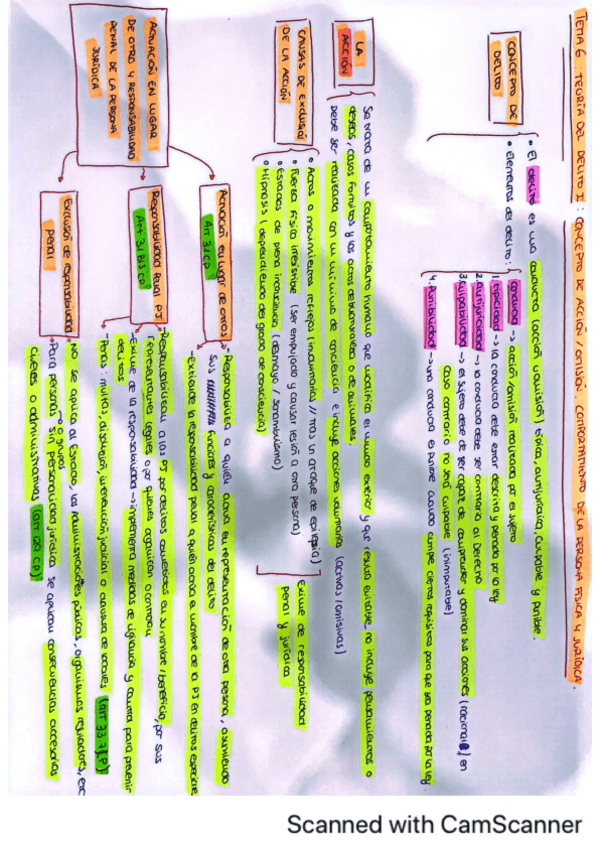 TEMA 6: TEORÍA DEL DELITO I: CONCEPTO DE ACCIÓN / OMISIÓN. COMPORTAMIENTO DE LA PERSONA FÍSICA Y JURÍDICA.
CONCEPTO DE
DELITO
• El delito es una conducta (acción u omisión) típica, antijurídica, culpable y punible.
• Elementos del delito:
conducta → acción/omisión realizada por el sujeto
1. tipicidad → la conducta debe estar descrita y penada por la ley
2. antijuricidad → la conducta debe ser contraria al derecho
3. culpabilidad → el sujeto debe de ser capaz de comprender y dominar sus acciones (racional) en
caso contrario no será culpable (inimputable)
4. Punibilidad → una conducta es punible cuando cumple ciertos requisitos para que sea penada por la ley.
LA
ACCIÓN
Se trata de un comportamiento humano que modifica el mundo exterior y que resulta evitable, no incluye pensamientos o
deseos, casos fortuitos y los actos de naturaleza o de animales.
Debe ser realizada con un mínimo de conciencia e incluye acciones voluntarias (activas/omisivas)
CAUSAS DE EXCLUSIÓN
DE LA ACCIÓN
• Actos o movimientos reflejos (involuntarios // tras un ataque de epilepsia)
• Fuerza física irresistible (ser empujado y causar lesión a otra persona)
• Estados de plena inconsciencia (desmayo / sonambulismo)
• Hipnosis (dependiendo del grado de consciencia)
Exime de responsabilidad
penal y jurídica
ACTUACIÓN EN LUGAR
DE OTRO Y RESPONSABILIDAD
PENAL DE LA PERSONA
JURÍDICA
Actuación en lugar de otros
Art 31 CP
- Responsabiliza a quien actúa en representación de otra persona, asumiendo
sus funciones y características del delito
- Excluye la responsabilidad penal a quien actúa en nombre de la PJ en delitos especiales
Responsabilidad Penal PJ
Art 31 BIS CP
- Responsabilizan a las PJ por delitos cometidos en su nombre/beneficio, por sus
representantes legales o por quienes organizan o controlan
- Exime de la responsabilidad → implementa medidas de vigilancia y control para prevenir
delitos
- Penas: multas, disolución, intervención judicial o clausura de locales (art 33.7 CP)
Exclusión de responsabilidad
penal
NO se aplica al Estado, las administraciones públicas, organismos reguladores, etc
o grupos
Para personas sin personalidad jurídica se aplican consecuencias accesorias
civiles o administrativas (art 129 CP)
Scanned with CamScanner